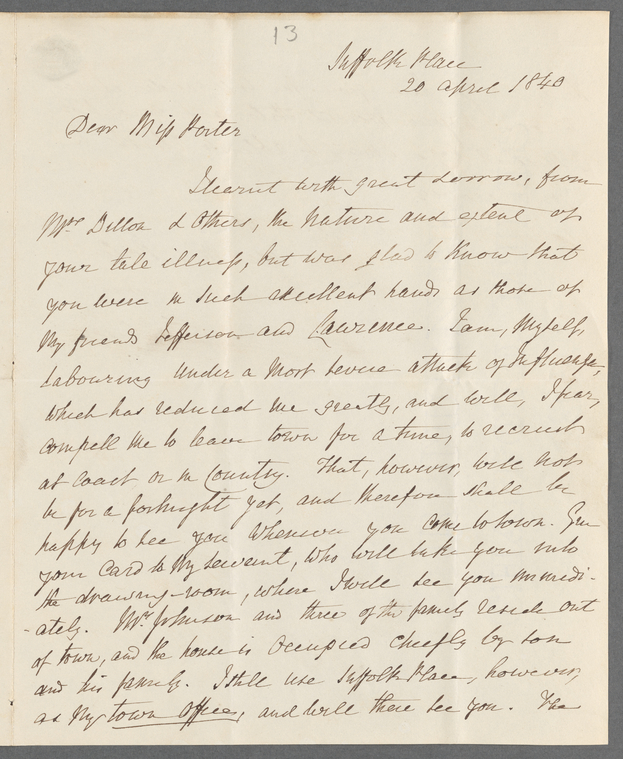 13
Suffolk Place
20 April 1840
Dear Miss Porter
I learnt with great sorrow, from
Mrs Dillon & others, the nature and extent of
your late illness, but was glad to know that
you were in such excellent hands as those of
my friends Jefferson and Lawrence. I am, myself,
labouring under a most severe attack of Influenza,
which has reduced me greatly, and will, I fear,
compell me to leave town for a time, to recruit
at Coast or in Country. That, however, will not
be for a fortnight yet, and therefore shall be
happy to see you whenever you come to town. Give
your Card to my servant, who will take you into
the drawing-room, where I will see you immedi-
-ately. Mrs Johnson and three of the family reside out
of town, and the house is occupied cheifly by son
and his family. I still use Suffolk Place, however,
as my town office, and will there see you. The